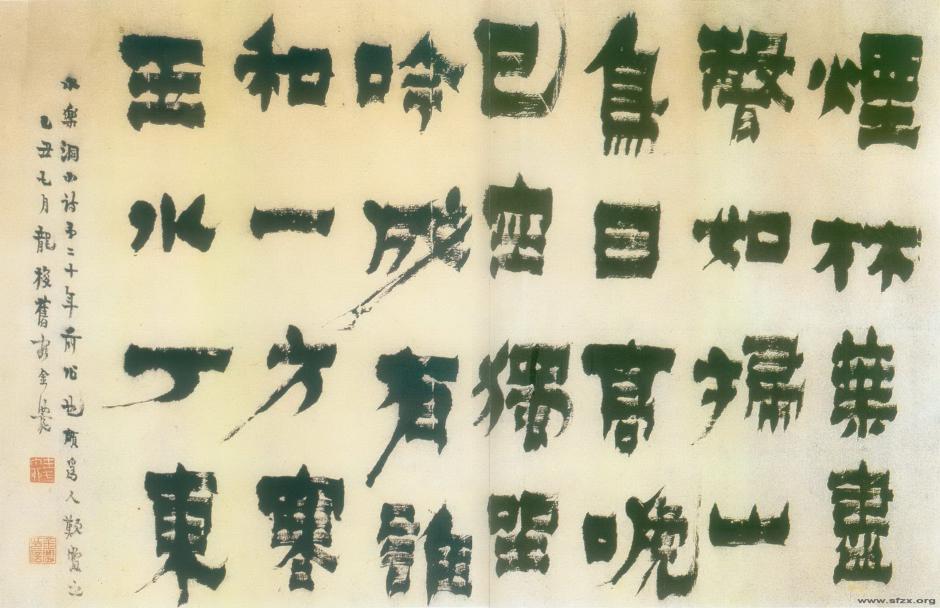 煙林葉盡
聲如掃山
鳥目高晚
已空獨坐
吟成有誰
和一方寒
玉水丁東
水樂洞小詩予二十年前作也頗爲人歎賞之
乙丑七月龍梭舊客金農
www.sfzx.org